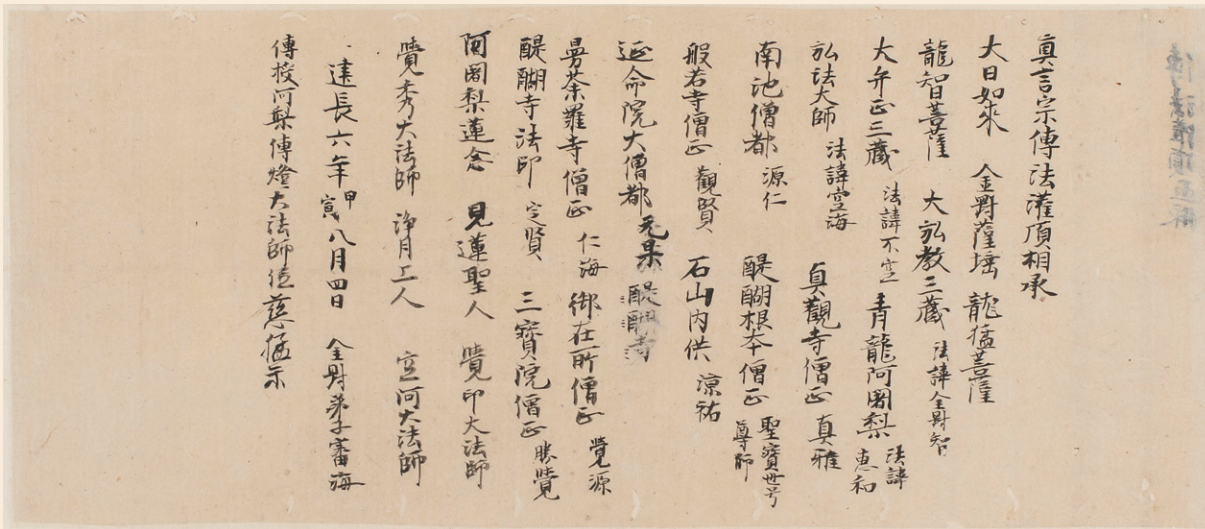 眞言宗傳法灌頂相承
大日如來 金剛薩埵 龍猛菩薩
龍智菩薩 大弘教三蔵 法諱金剛智
大弁正三蔵 法諱不空 青龍阿闍梨 法諱恵和
弘法大師 法諱空海 貞觀寺僧正 真雅
南池僧都 源仁 醍醐根本僧正 聖寶世号尊師
般若寺僧正 觀賢 石山内供 淳祐
延命院大僧都 元杲 醍醐寺
曼荼羅寺僧正 仁海 御在所僧正 覺源
醍醐寺法印 定賢 三寶院僧正 勝覺
阿闍梨蓮念 見蓮聖人 覺印大法師
覺秀大法師 浄月上人 空阿大法師
建長六年甲寅八月四日 金剛弟子審海
傳授阿梨傳燈大法師位慈猛示